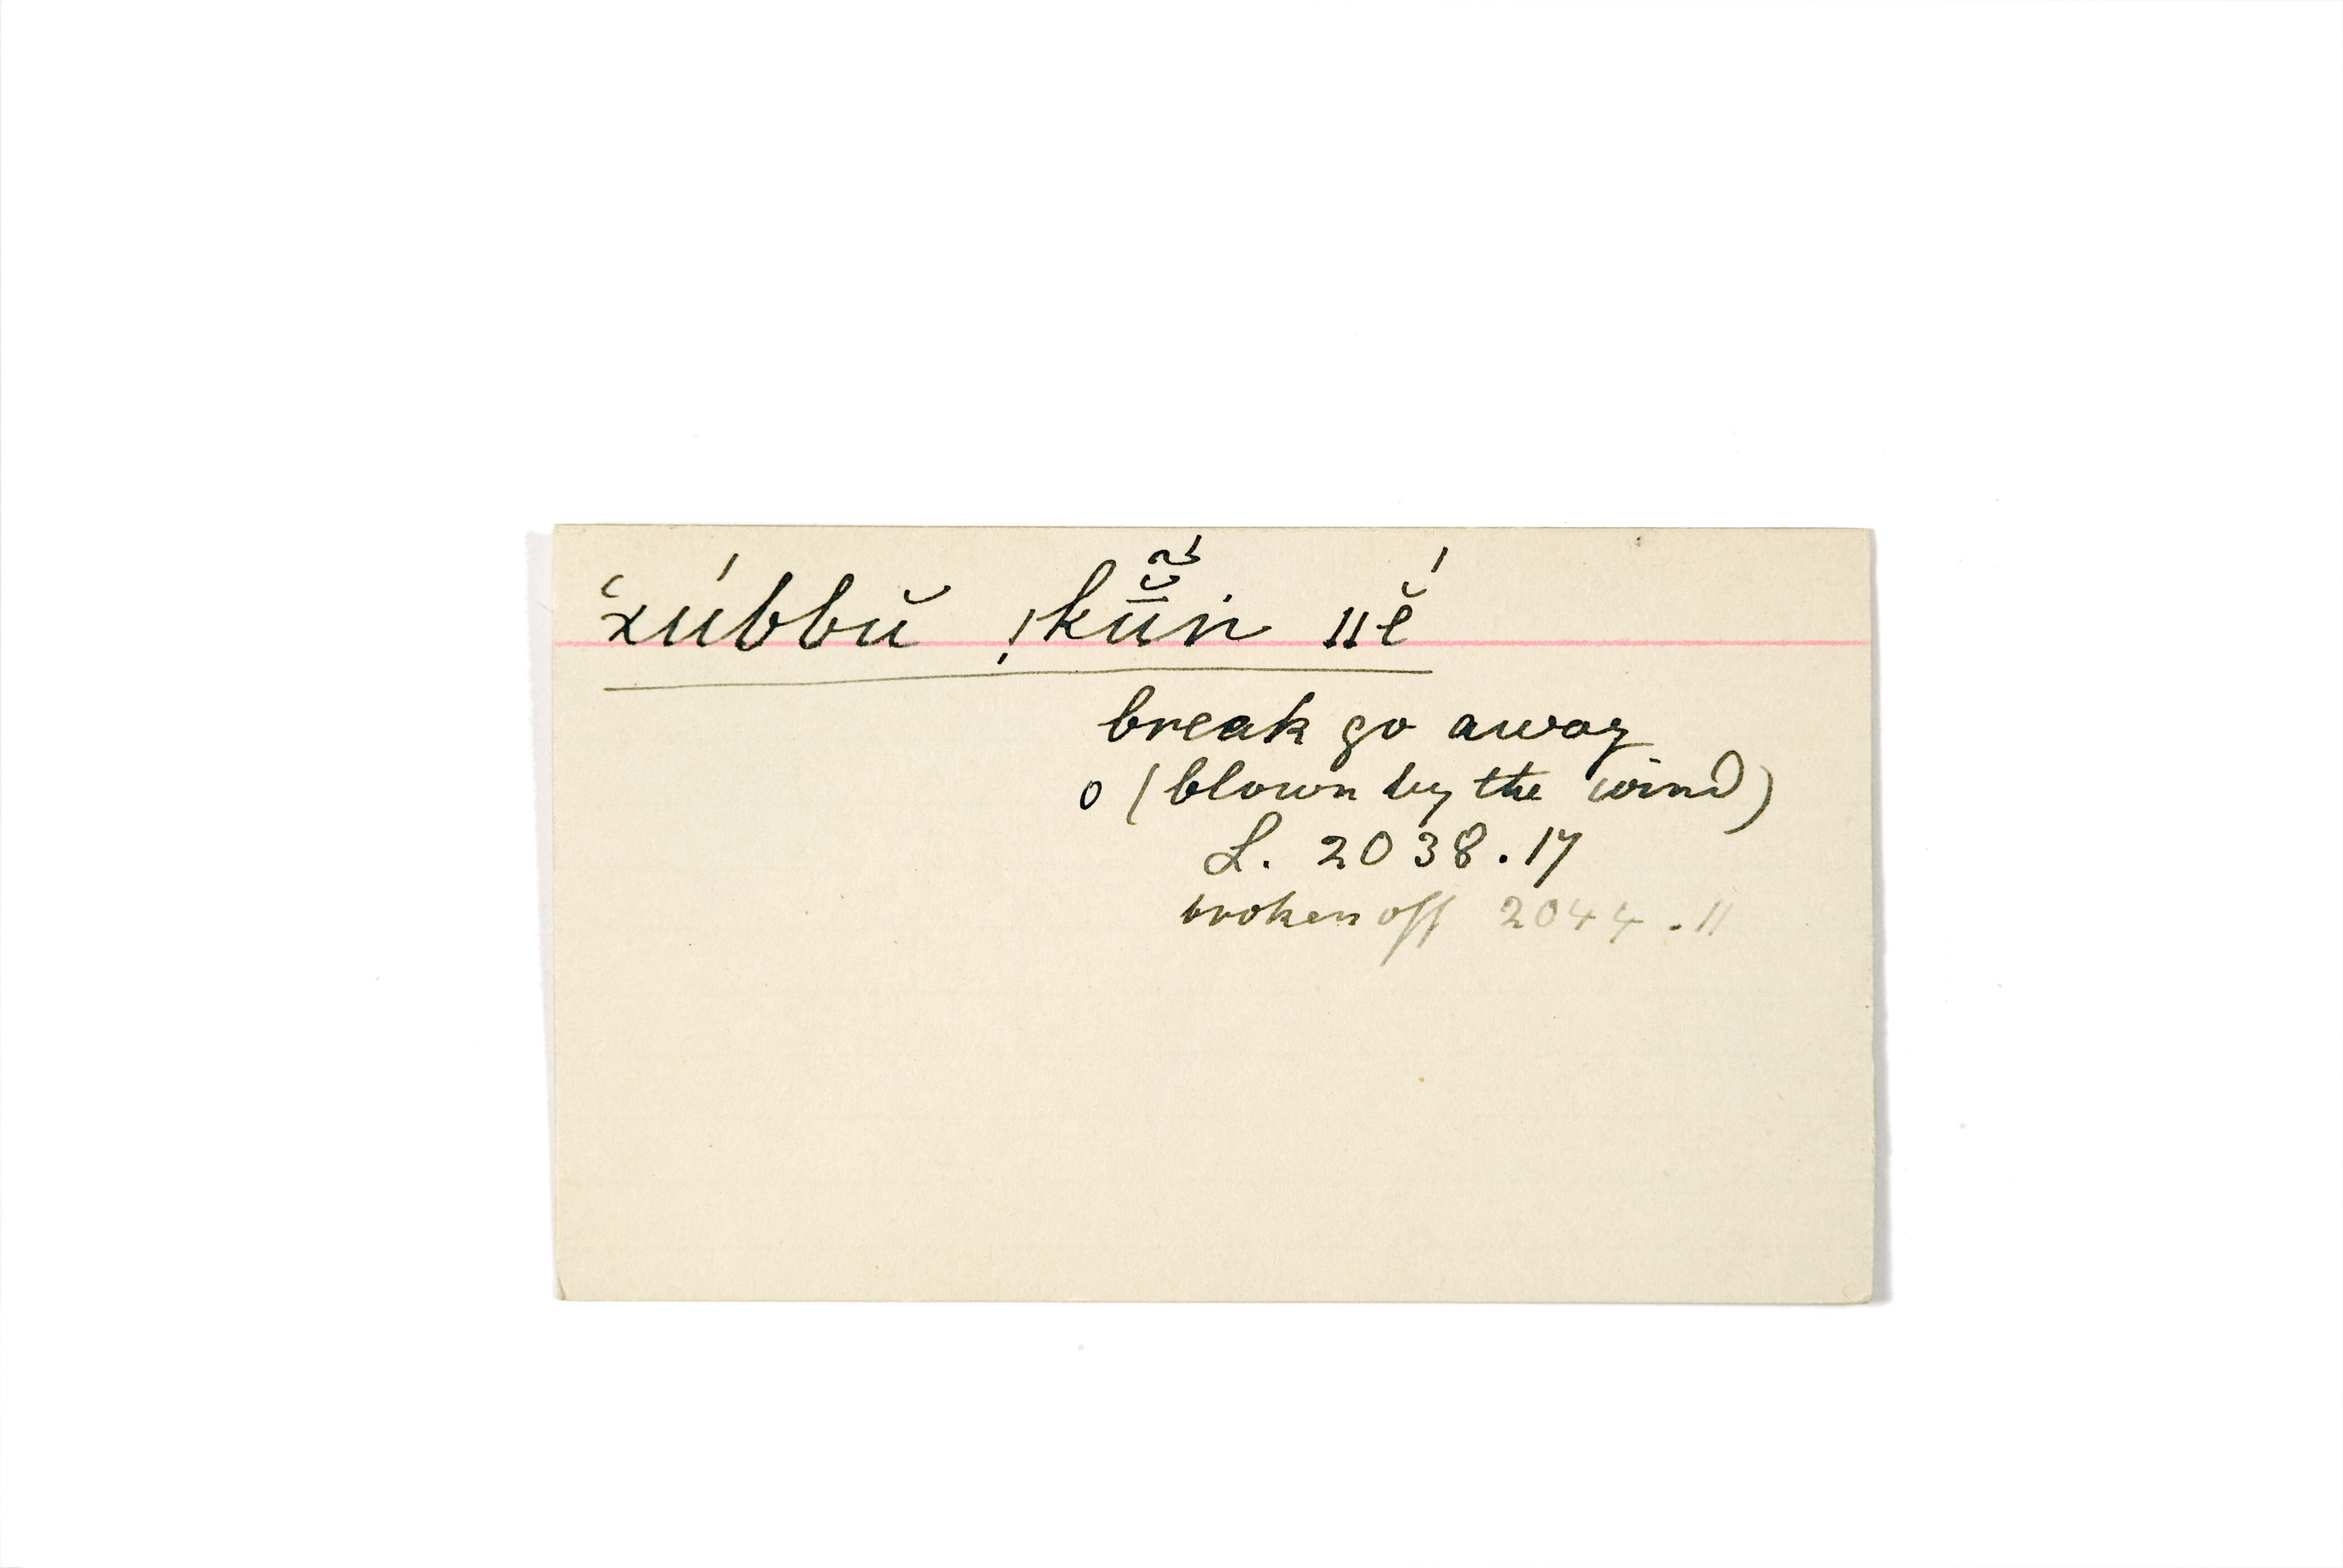 ʿxúbbŭ !kṹ̆ṅ ǁĕ́
break go away
o (blown by the wind)
L. 2038.17
broken off 2044.11